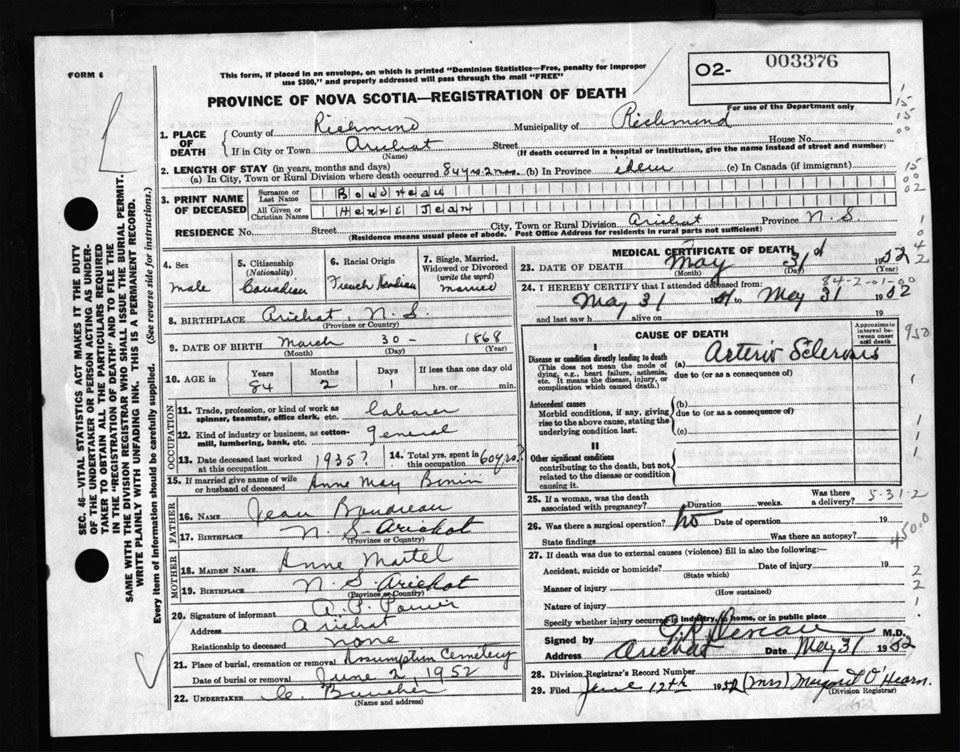 FORM 6
This form, if placed in an envelope, on which is printed "Dominion Statistics—Free, penalty for improper
use $300," and properly addressed will pass through the mail "FREE"
02- 003376
For use of the Department only
PROVINCE OF NOVA SCOTIA—REGISTRATION OF DEATH
1. PLACE OF DEATH
County of Richmond Municipality of Richmond
If in City or Town Arichat Street House No.
(Name) (If death occurred in a hospital or institution, give the name instead of street and number)
2. LENGTH OF STAY (in years, months and days)
(a) In City, Town or Rural Division where death occurred 84 yrs. 2 mos. (b) In Province idem (c) In Canada (if immigrant)
3. PRINT NAME OF DECEASED
Surname or Last Name Boudreau
All Given or Christian Names Henri Jean
RESIDENCE No. Street City, Town or Rural Division Arichat Province N.S.
(Residence means usual place of abode. Post Office Address for residents in rural parts not sufficient)
4. Sex
male
5. Citizenship (Nationality)
Canadian
6. Racial Origin
French
7. Single, Married, Widowed or Divorced (write the word)
married
8. BIRTHPLACE Arichat, N.S.
(Province or Country)
9. DATE OF BIRTH March 30- 1868
(Month) (Day) (Year)
10. AGE in Years Months Days If less than one day old
84 2 1 hrs. or min.
OCCUPATION
11. Trade, profession, or kind of work as spinner, teamster, office clerk, etc. labourer
12. Kind of industry or business, as cotton-mill, lumbering, bank, etc. general
13. Date deceased last worked at this occupation 1935?
14. Total yrs. spent in this occupation 60 yrs.?
15. If married give name of wife or husband of deceased Anne May Bonin
FATHER
16. NAME Jean Boudreau
17. BIRTHPLACE N.S. Arichat
(Province or Country)
MOTHER
18. MAIDEN NAME Anne Martel
19. BIRTHPLACE N.S. Arichat
(Province or Country)
20. Signature of informant A. P. Poirier
Address Arichat
Relationship to deceased none
21. Place of burial, cremation or removal Assumption Cemetery
Date of burial or removal June 2, 1952
22. UNDERTAKER C.
(Name and address)
MEDICAL CERTIFICATE OF DEATH
23. DATE OF DEATH May 31st 1952
(Month) (Day) (Year)
84-2-01-00
24. I HEREBY CERTIFY that I attended deceased from:
May 31 19 to May 31 1952
and last saw h alive on 19
CAUSE OF DEATH
Approximate interval between onset and death
I
Disease or condition directly leading to death
(This does not mean the mode of dying, e.g., heart failure, asthenia, etc. It means the disease, injury, or complication which caused death.)
(a) Arterio Sclerosis
due to (or as a consequence of)
Antecedent causes
Morbid conditions, if any, giving rise to the above cause, stating the underlying condition last.
(b)
due to (or as a consequence of)
(c)
II
Other significant conditions
contributing to the death, but not related to the disease or condition causing it.
25. If a woman, was the death associated with pregnancy? Duration weeks. Was there a delivery?
5-31-2
26. Was there a surgical operation? No Date of operation 19
State findings Was there an autopsy?
4500
27. If death was due to external causes (violence) fill in also the following:
Accident, suicide or homicide? Date of injury 19
(State which)
Manner of injury
(How sustained)
Nature of injury
Specify whether injury occurred in industry, in home, or in public place
Signed by M.D.
Address Arichat Date May 31 1952
28. Division Registrar's Record Number
29. Filed June 12th 1952 (Mrs) Margaret O'Hearn.
(Division Registrar)
SEC. 46—VITAL STATISTICS ACT MAKES IT THE DUTY
OF THE UNDERTAKER OR PERSON ACTING AS UNDER-
TAKER TO OBTAIN ALL THE PARTICULARS REQUIRED
IN THE "REGISTRATION OF DEATH" AND TO FILE THE
SAME WITH THE DIVISION REGISTRAR WHO SHALL ISSUE THE BURIAL PERMIT.
WRITE PLAINLY WITH UNFADING INK. THIS IS A PERMANENT RECORD.
Every item of Information should be carefully supplied. (See reverse side for instructions.)
950